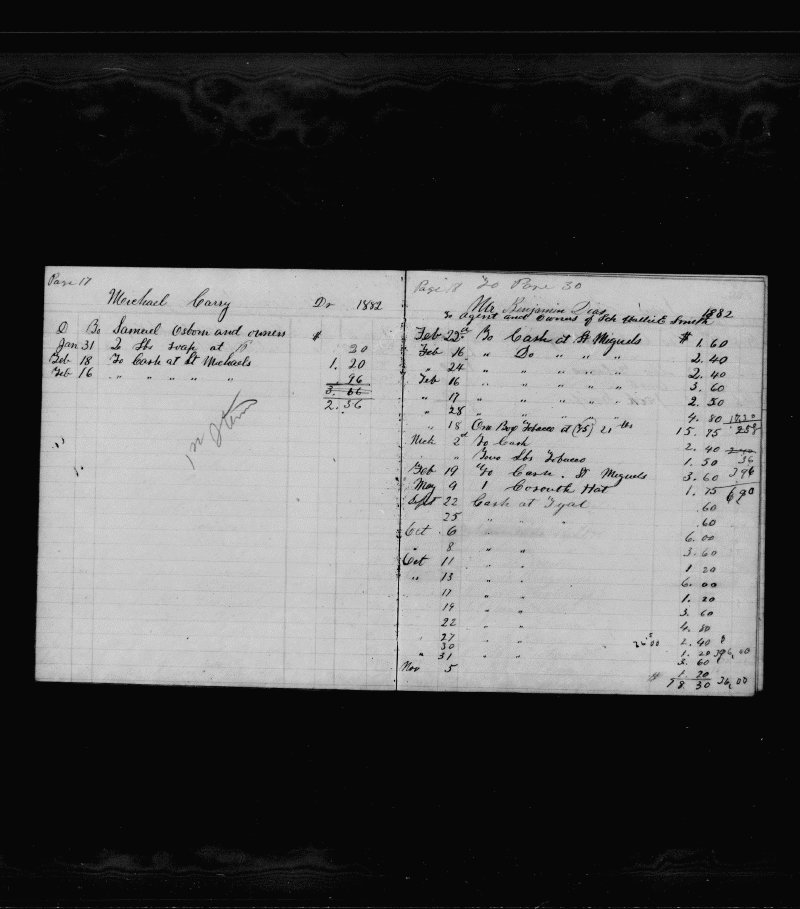 Page 17
Michael Carry Dr 1882
To Samuel Osborn and owners $
Jan 31 2 lbs soap at 20
Feb 18 To Cash at St Michaels 1.20
Feb 16 " " " " " .96
2.36
Page 18 To Page 30
Mr Benjamin Dias 1882
To agent and owners of Sch Hattie E Smith
Feb 22d To Cash at St Miguels $ 1.60
Feb 16 " Do " " " 2.40
" 24 " " " " " 2.40
Feb 16 " " " " " 3.60
" 17 " " " " " 2.50
" 28 " " " " " 4.80
" 18 One Box Tobacco at (75) 21 lbs 15.75
Mch 2d To Cash 2.40
Two lbs Tobacco 1.50 36
Feb 19 To Cash St Miguels 3.60 396
May 9 1 Hat 1.75 690
Sept 22 Cash at Fyal .60
25 " " " .60
Oct 6 6.00
" 8 " " 3.60
Oct 11 " " 1.20
" 13 " " 6.00
17 " " 1.20
19 " " 3.60
22 " " 4.80
" 27 " " 2.40
30 " " 1.20
" 31 " " 3.60
Nov 5 1.20
$ 78.30 36,00